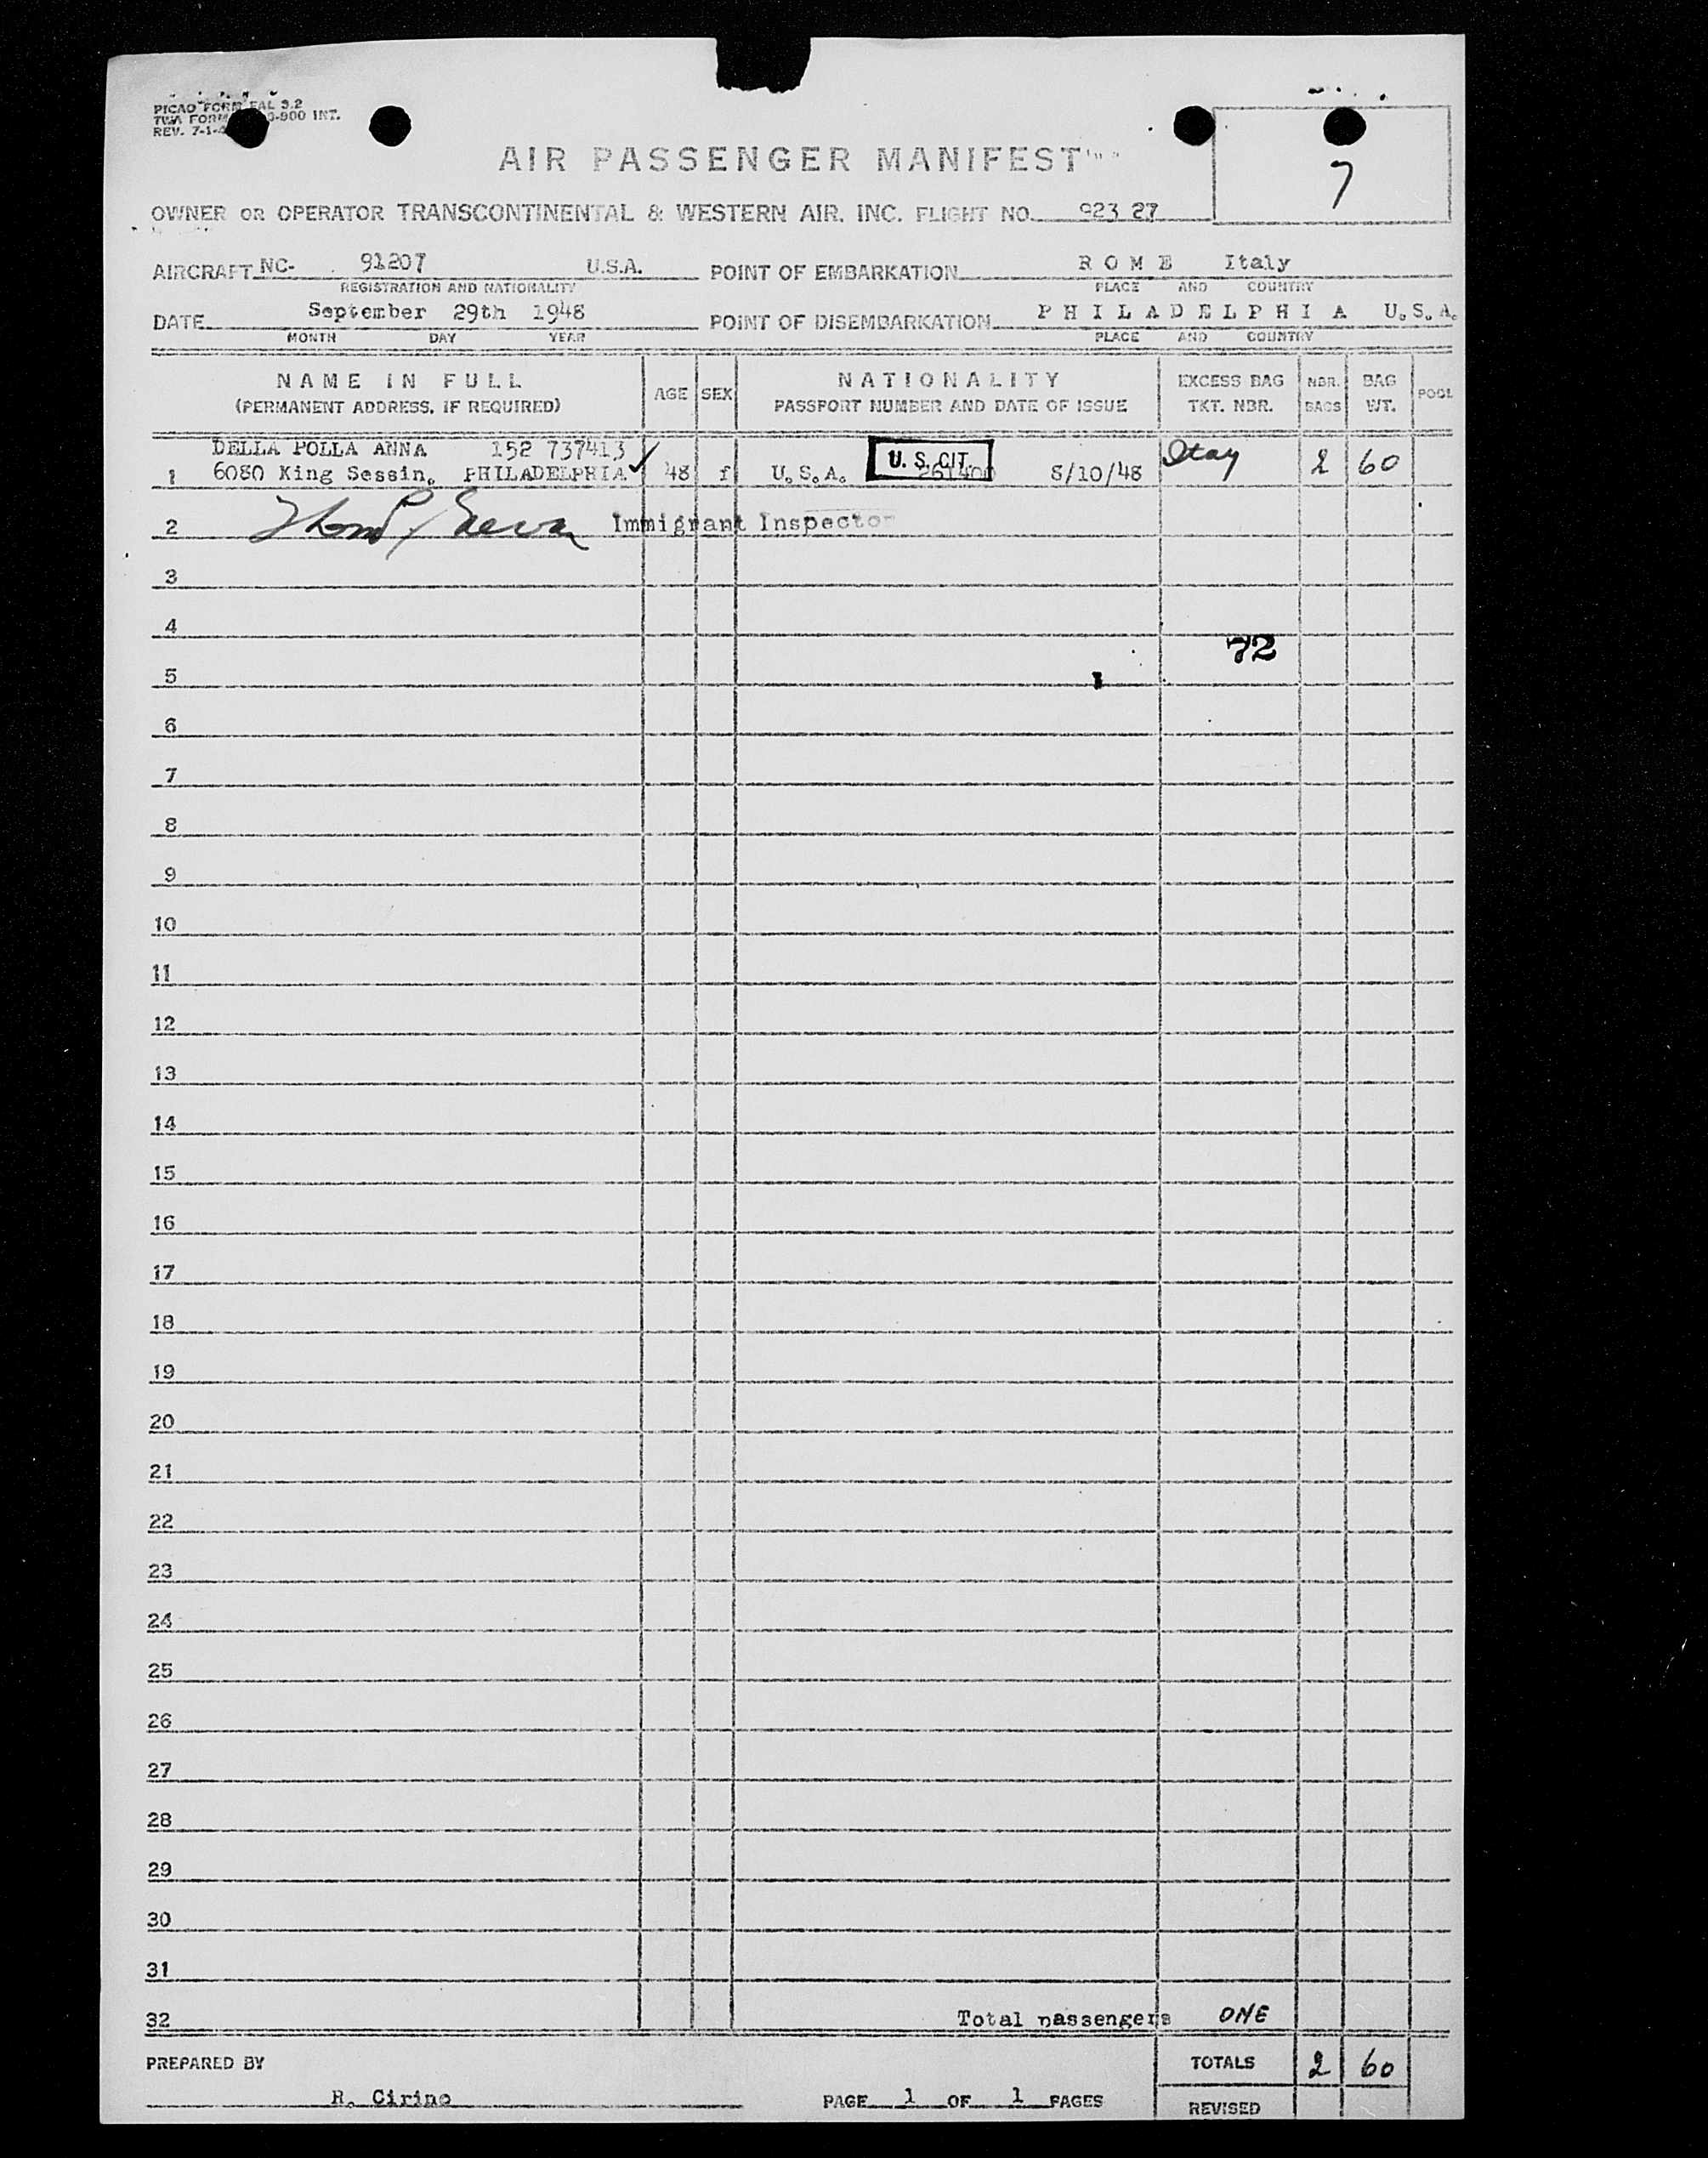 PICAO FORM FAL 3.2
TWA FORM -900 INT.
REV. 7-1-4
7
AIR PASSENGER MANIFEST
OWNER OR OPERATOR TRANSCONTINENTAL & WESTERN AIR, INC. FLIGHT NO. 923 27
AIRCRAFT NC- 91207 U.S.A. POINT OF EMBARKATION R O M E Italy
REGISTRATION AND NATIONALITY PLACE AND COUNTRY
DATE September 29th 1948 POINT OF DISEMBARKATION P H I L A D E L P H I A U.S.A.
MONTH DAY YEAR PLACE AND COUNTRY
NAME IN FULL AGE SEX NATIONALITY EXCESS BAG NBR. BAG POOL
(PERMANENT ADDRESS, IF REQUIRED) PASSPORT NUMBER AND DATE OF ISSUE TKT. NBR. BAGS WT.
DELLA POLLA ANNA 152 737413
1 6080 King Sessin. PHILADELPHIA 48 f U.S.A. U. S. CIT. 261400 8/10/48 Itay 2 60
2 Immigrant Inspector
3
4
72
5
6
7
8
9
10
11
12
13
14
15
16
17
18
19
20
21
22
23
24
25
26
27
28
29
30
31
32 Total passengers ONE
PREPARED BY TOTALS 2 60
R. Cirino PAGE 1 OF 1 PAGES REVISED